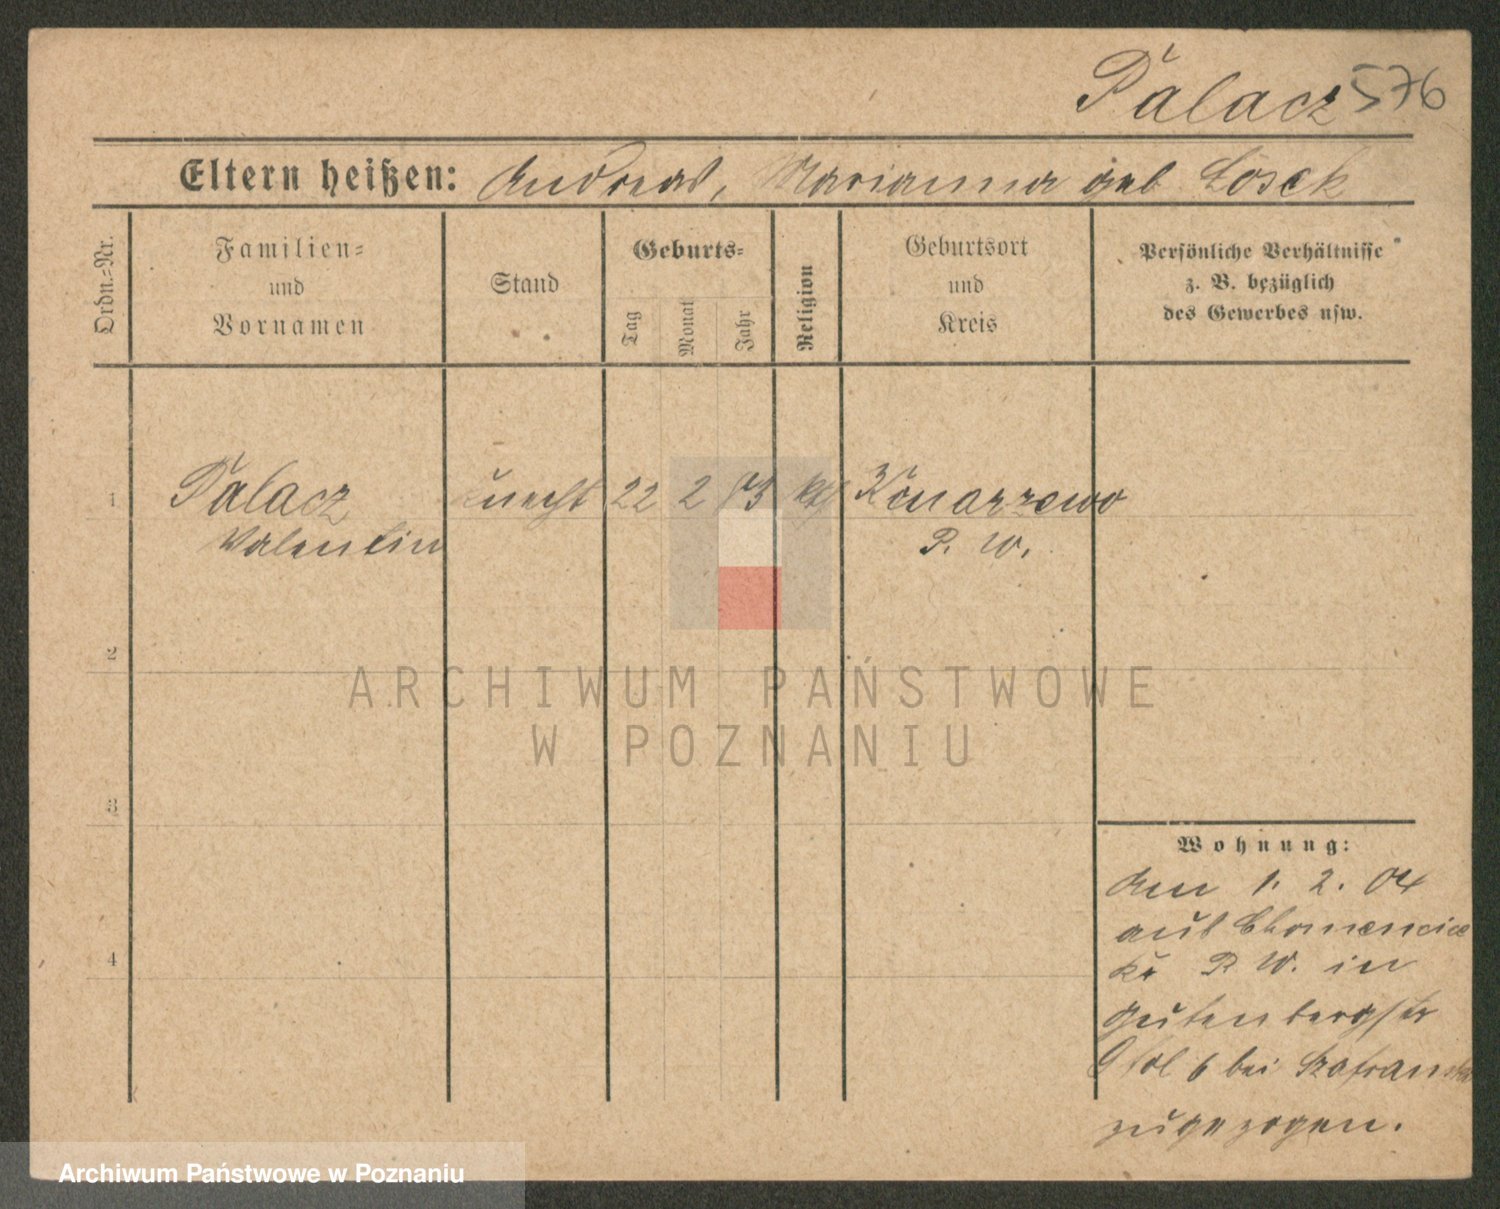 Palacz 576
Eltern heißen: Andreas, Marianna geb Losek
Ordn.=Nr.
Familien=
und
Vornamen
Stand
Geburts=
Tag
Monat
Jahr
Religion
Geburtsort
und
Kreis
Persönliche Verhältnisse
z. B. bezüglich
des Gewerbes usw.
1 Palacz Knecht 22 2 83 kth Konarzewo
Valentin P. W.
2
3
4
Wohnung:
den 1. 2. 04
aus Chomencice
Kr P. W. in
Gutenbergstr
6 bei
zugezogen.
ARCHIWUM PAŃSTWOWE
W POZNANIU
Archiwum Państwowe w Poznaniu